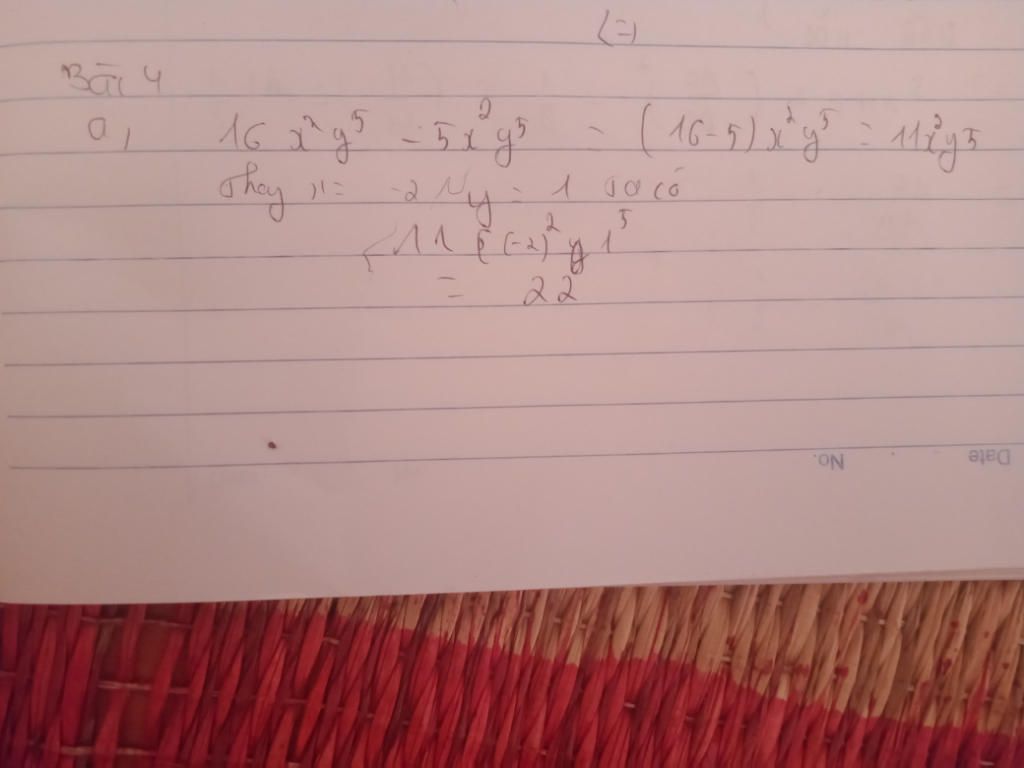 (=)
Bài 4
a, 16 x²y⁵ - 5x²y⁵ = (16-5)x²y⁵ = 11x²y5
Thay x = -2 y = 1 ta có
11 (-2)² 1⁵
= 22
Date No.